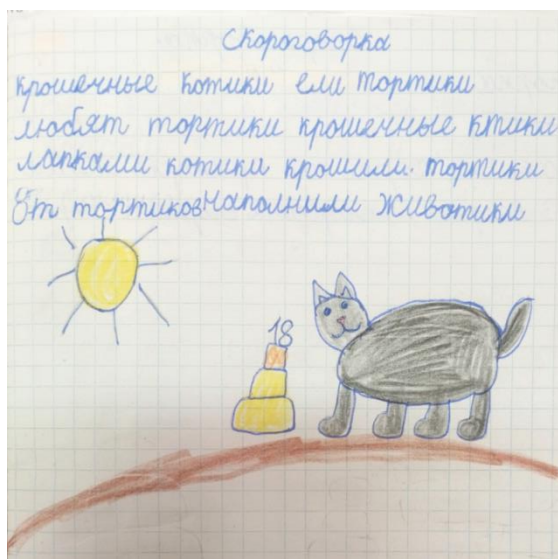 Скороговорка
крошечные котики ели тортики
любят тортики крошечные ктики
лапками котики крошили. тортики
От тортиков наполнили животики
18